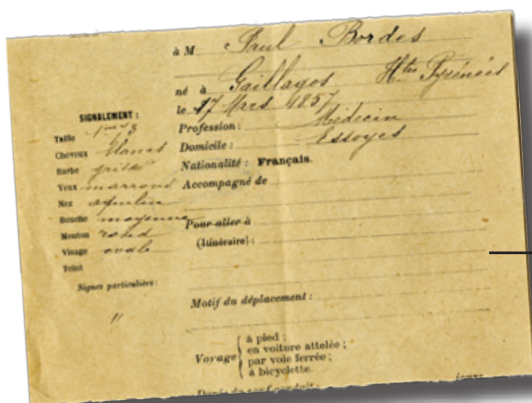 à M Paul Bordes
né à Gaillagos Htes Pyrénées
le 17 Mars 1857
Profession : Médecin
Domicile : Essoyes
Nationalité : Français.
Accompagné de
Pour aller à
(Itinéraire) :
Motif du déplacement :
Voyage
à pied ;
en voiture attelée ;
par voie ferrée ;
à bicyclette.
SIGNALEMENT :
Taille 1m 73
Cheveux blancs
Barbe grise
Yeux marrons
Nez aquilin
Bouche moyenne
Menton rond
Visage ovale
Teint
Signes particuliers :
"